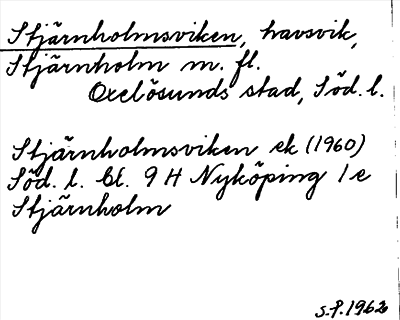 Stjärnholmsviken, havsvik,
Stjärnholm m. fl.
Oxelösunds stad, Söd. l.
Stjärnholmsviken ek (1960)
Söd. l. bl. 9 H Nyköping 1 e
Stjärnholm
S.P. 1962